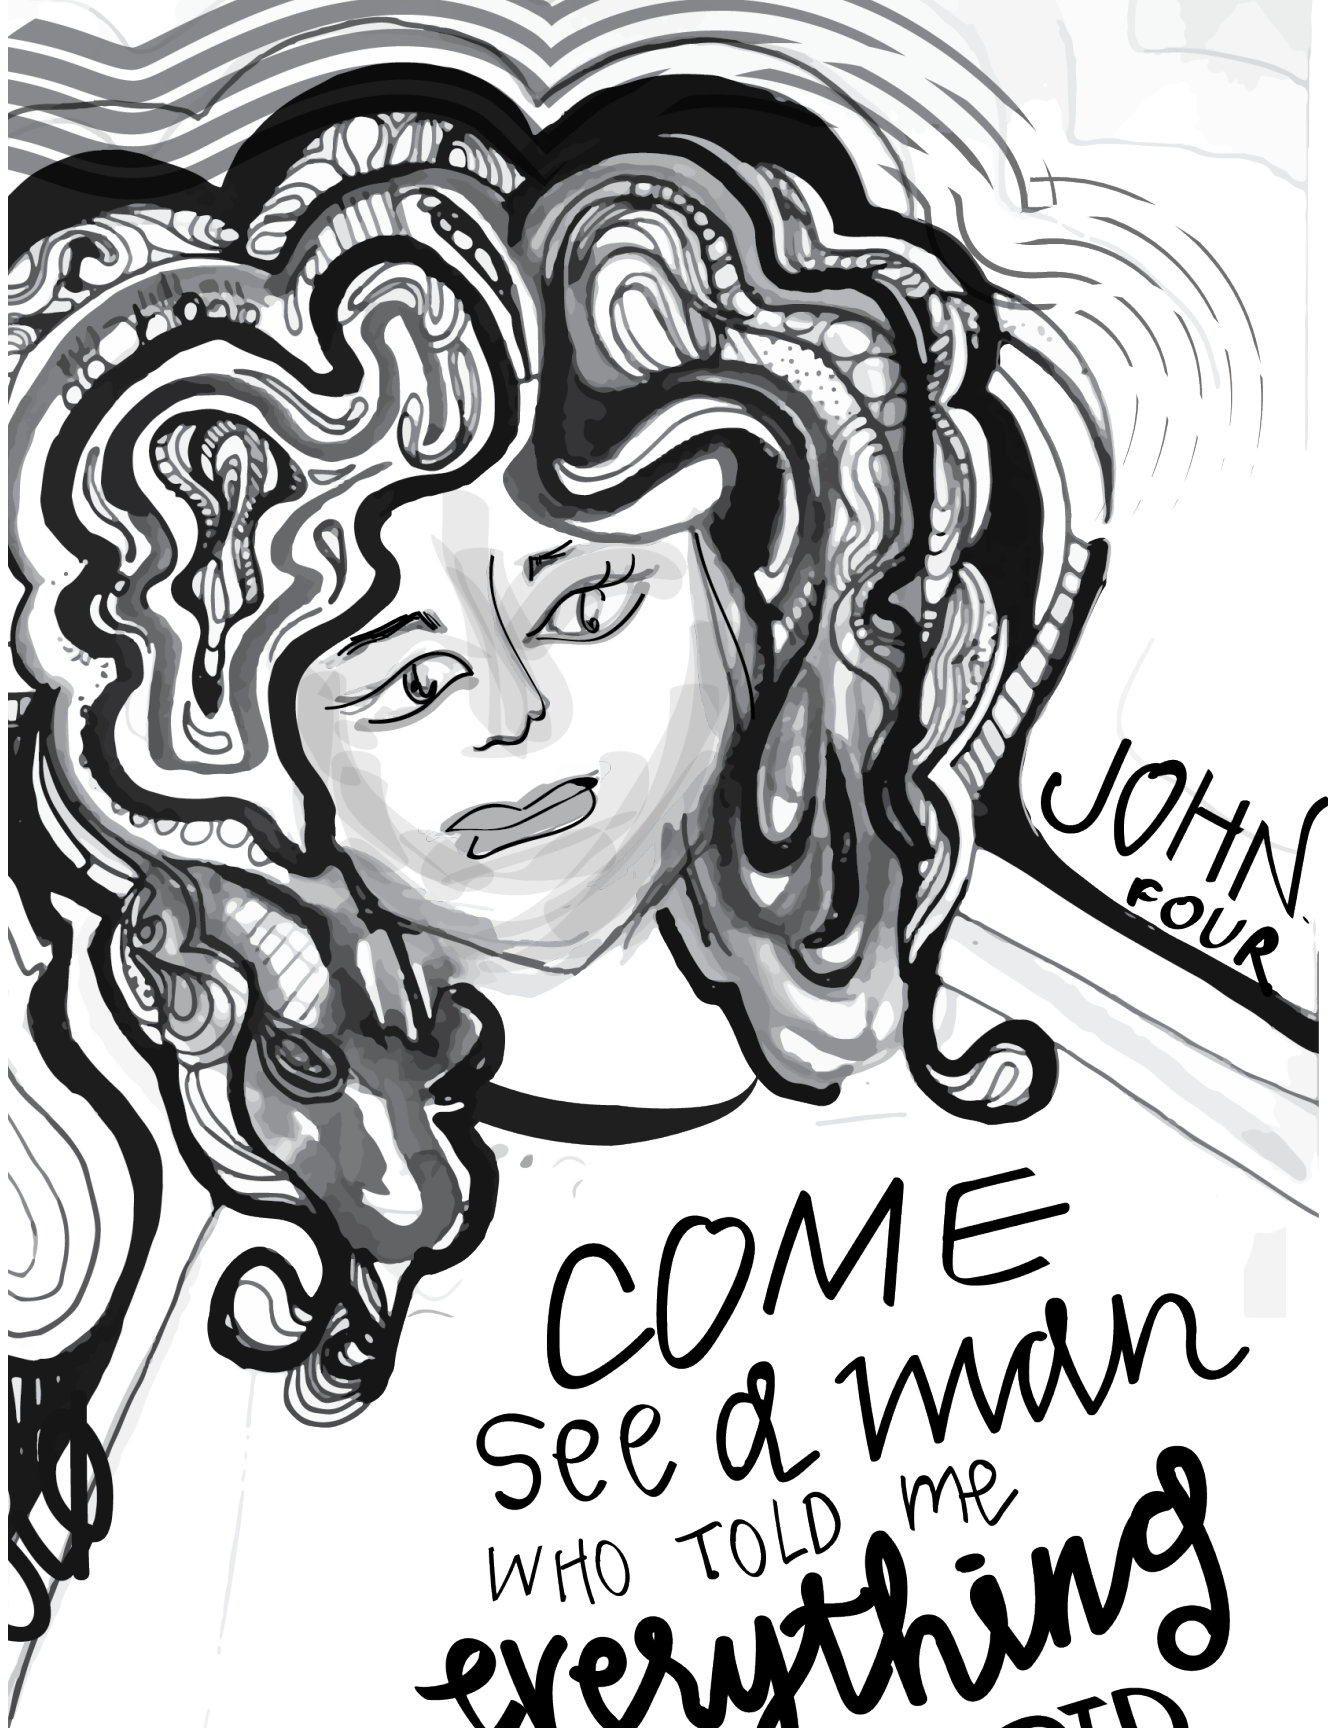 JOHN
FOUR
COME
see a man
WHO TOLD me
everything